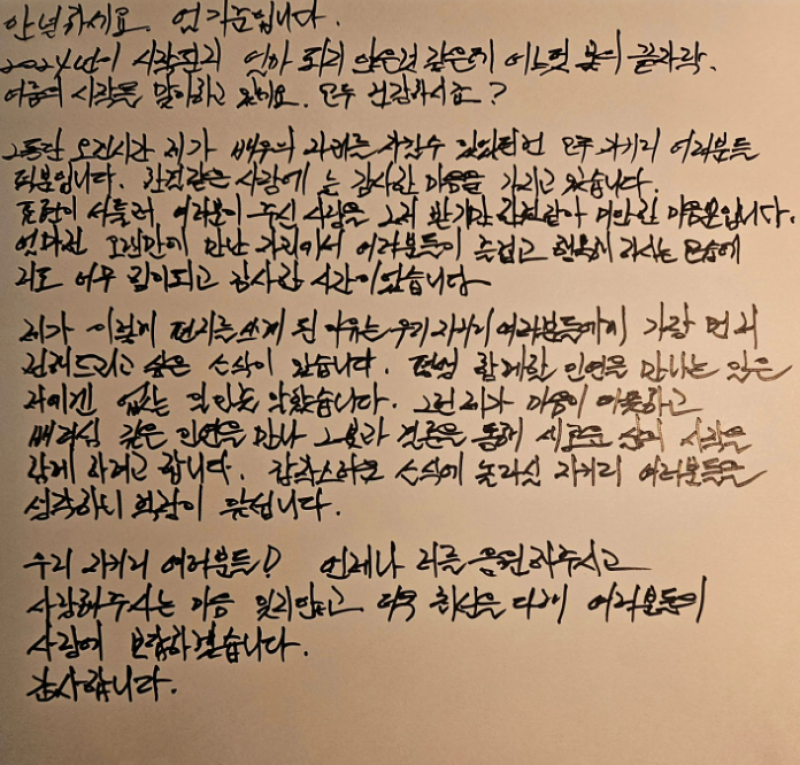 안녕하세요. 엄기준입니다.
2024년이 시작된지 얼마 되지 않은것 같은데 어느덧 봄의 끝자락.
여름의 시작을 맞이하고 있네요. 모두 건강하시죠?
그동안 오랜시간 제가 배우의 자리를 지킬수 있었던건 모두 자기리 여러분들
덕분입니다. 한결같은 사랑에 늘 감사한 마음을 가지고 있습니다.
표현이 서툴러 여러분이 주신 사랑을 그저 받기만 한것같아 미안한 마음뿐입니다.
얼마전 오랜만에 만난 자리에서 여러분들이 즐겁고 행복해 하시는 모습에
저도 너무 힘이되고 감사한 시간이었습니다
제가 이렇게 편지를 쓰게 된 이유는 우리 자기리 여러분들에게 가장 먼저
전해드리고 싶은 소식이 있습니다. 평생 함께할 인연을 만나는 일은
저에겐 없는 일인줄 알았습니다. 그런 제가 마음이 따뜻하고
배려심 깊은 인연을 만나 그분과 결혼을 통해 새로운 삶의 시작을
함께 하려고 합니다. 갑작스러운 소식에 놀라실 자기리 여러분들을
생각하니 걱정이 앞섭니다.
우리 자기리 여러분들! 언제나 저를 응원해주시고
사랑해주시는 마음 잊지않고 더욱 최선을 다해 여러분들의
사랑에 보답하겠습니다.
감사합니다.